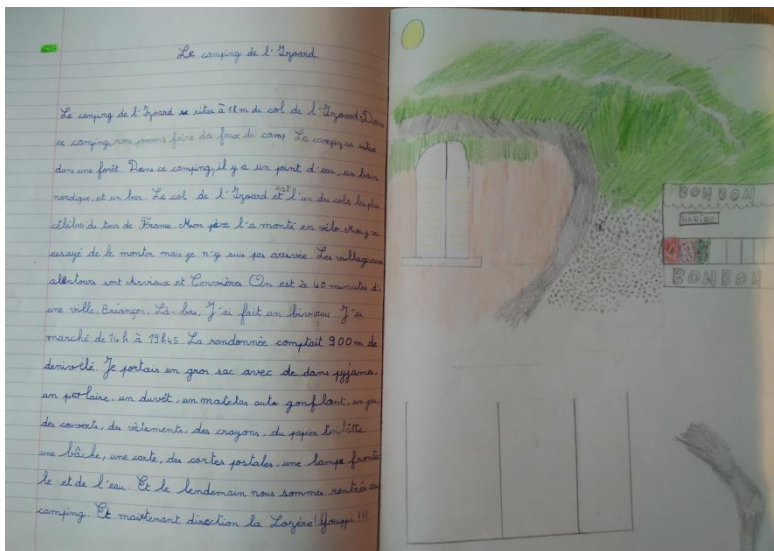 Le camping de l'Izoard
Le camping de l'Izoard se situe à 11m du col de l'Izoard. Dans
ce camping, nous pouvons faire des feux de camp. Le camping se situe
dans une forêt. Dans ce camping, il y a un point d'eau, un bain
nordique, et un bar. Le col de l'Izoard est l'un des cols les plus
célèbres du tour de France. Mon père l'a monté en vélo. Moi j'ai
essayé de le monter mais je n'y suis pas arrivée. Les villages aux
alentours sont Arvieux et Cervières. On est à 40 minutes d'
une ville, Briançon. Là-bas, J'ai fait un bivouac. J'ai
marché de 14h à 19h45. La randonnée comptait 900m de
denivelé. Je portais un gros sac avec de dans pyjama,
un polaire, un duvêt, un matelas auto gonflant, un
des couverts, des vêtements, des crayons, du papier toilette
une bâche, une carte, des cartes postales, une lampe fronta
le et de l'eau. Et le lendemain nous sommes rentrés au
camping. Et maintenant direction la Lozère! Youppi!!!
BONBON
BONBON